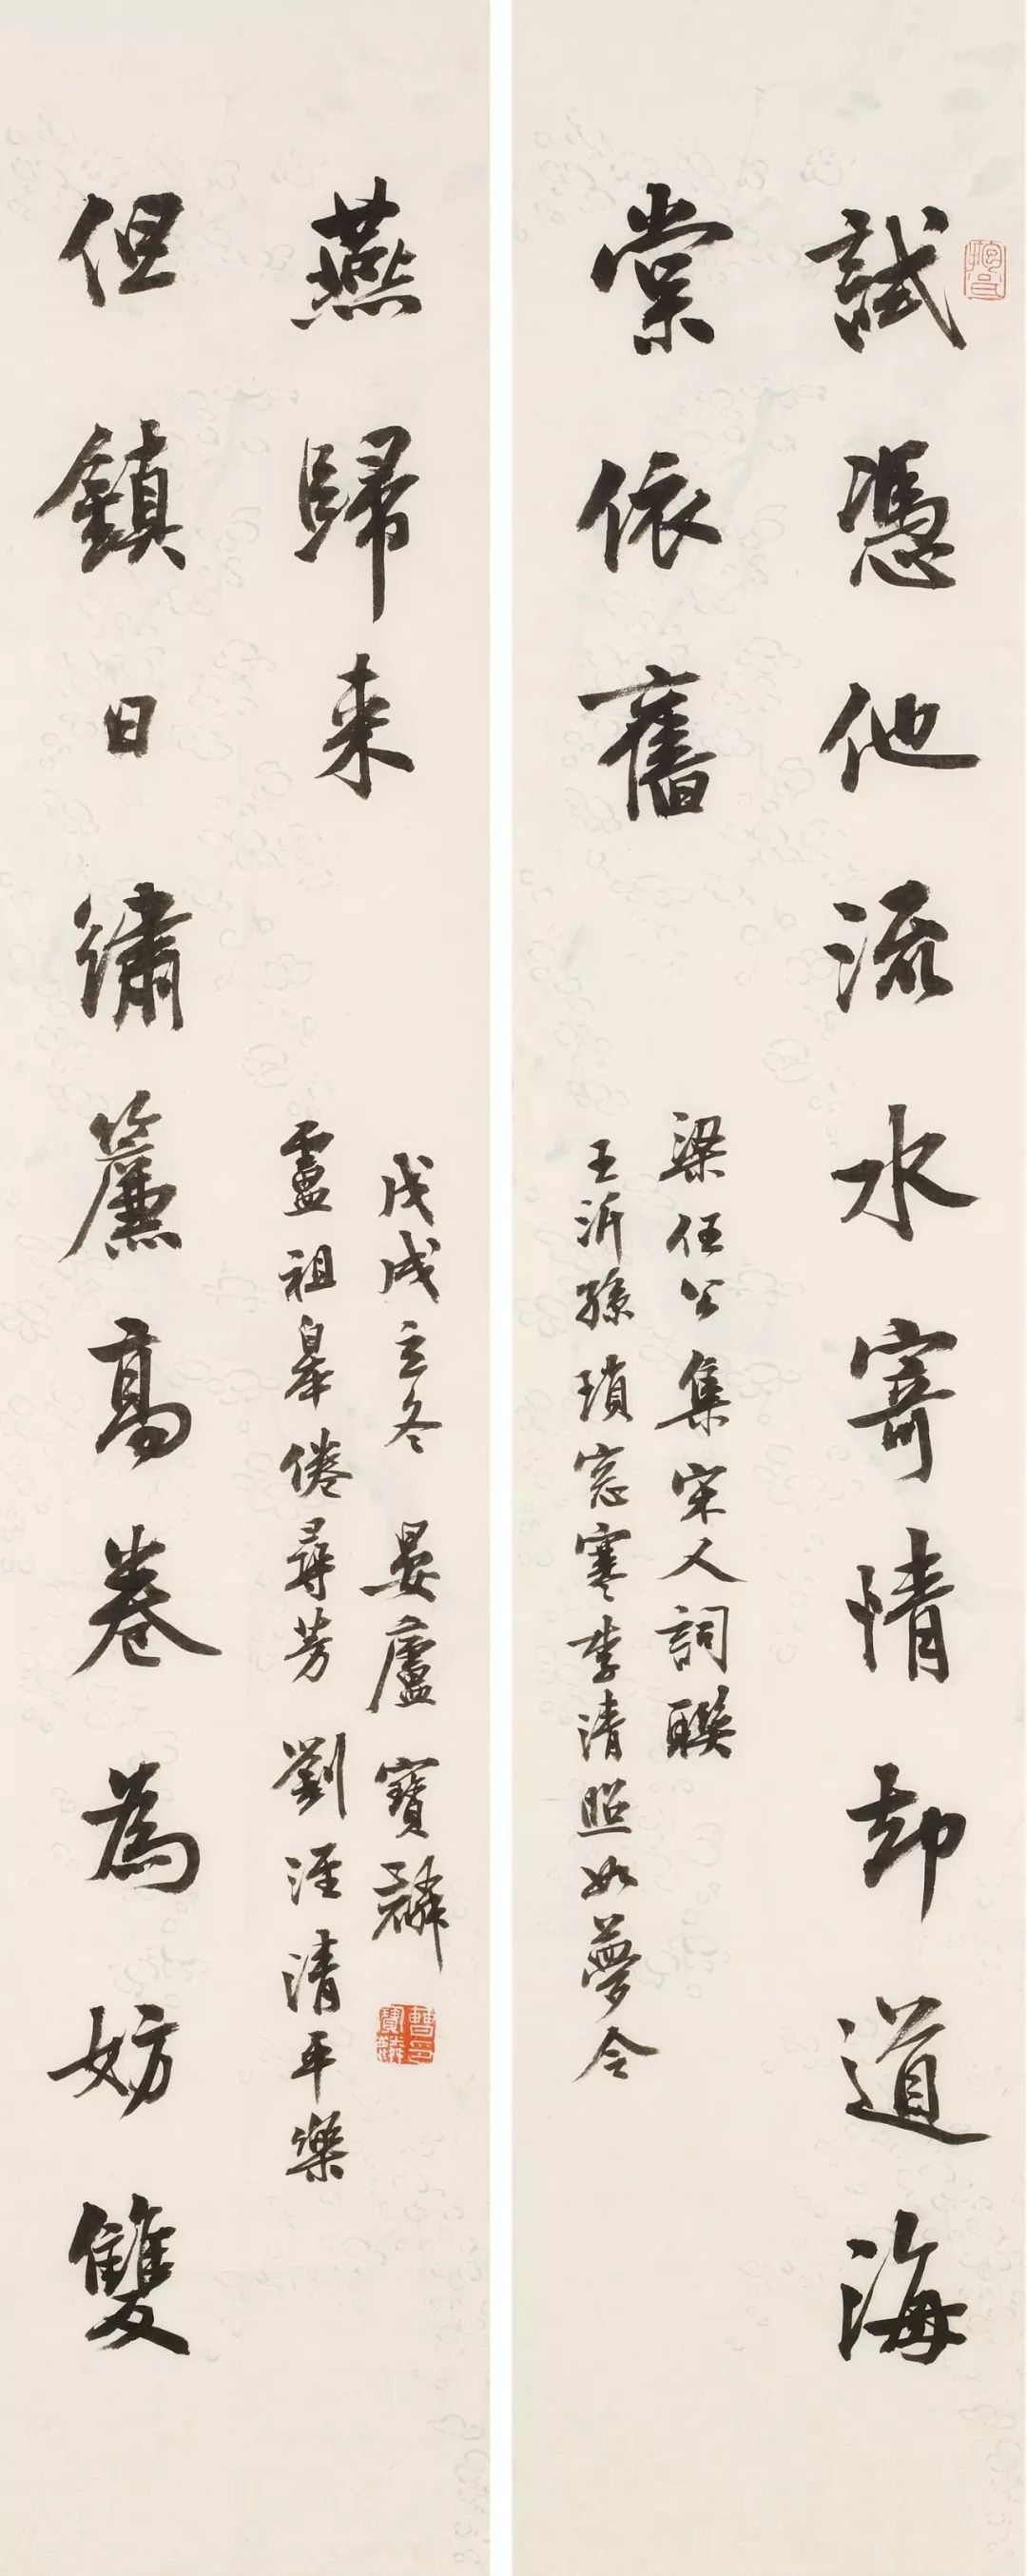 試憑他流水寄情却道海
棠依舊
梁任公集宋人詞聯
王沂孫瑣窓寒李清照如夢令
但鎮日繡簾高卷為妨雙
燕歸来
盧祖皋倦尋芳 劉涇清平樂
戊戌立冬 晏廬寶麟
曹寶麟印